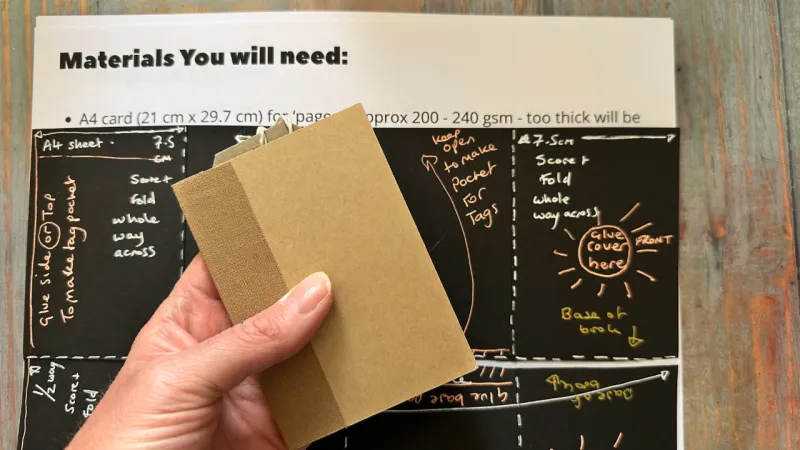 Materials You will need:
• A4 card (21 cm x 29.7 cm) for 'page approx 200 - 240 gsm - too thick will be
A4 sheet. 7.5
cm
Score +
Fold
whole
way
across
Glue side or Top
To make tag pocket
Keep
open
to make
Pocket
For
Tags
7.5cm
Score +
Fold
whole
way across
Glue
cover
here
FRONT
Base of
book
1/2 way
Score +
Fold
glue base
Base of
book